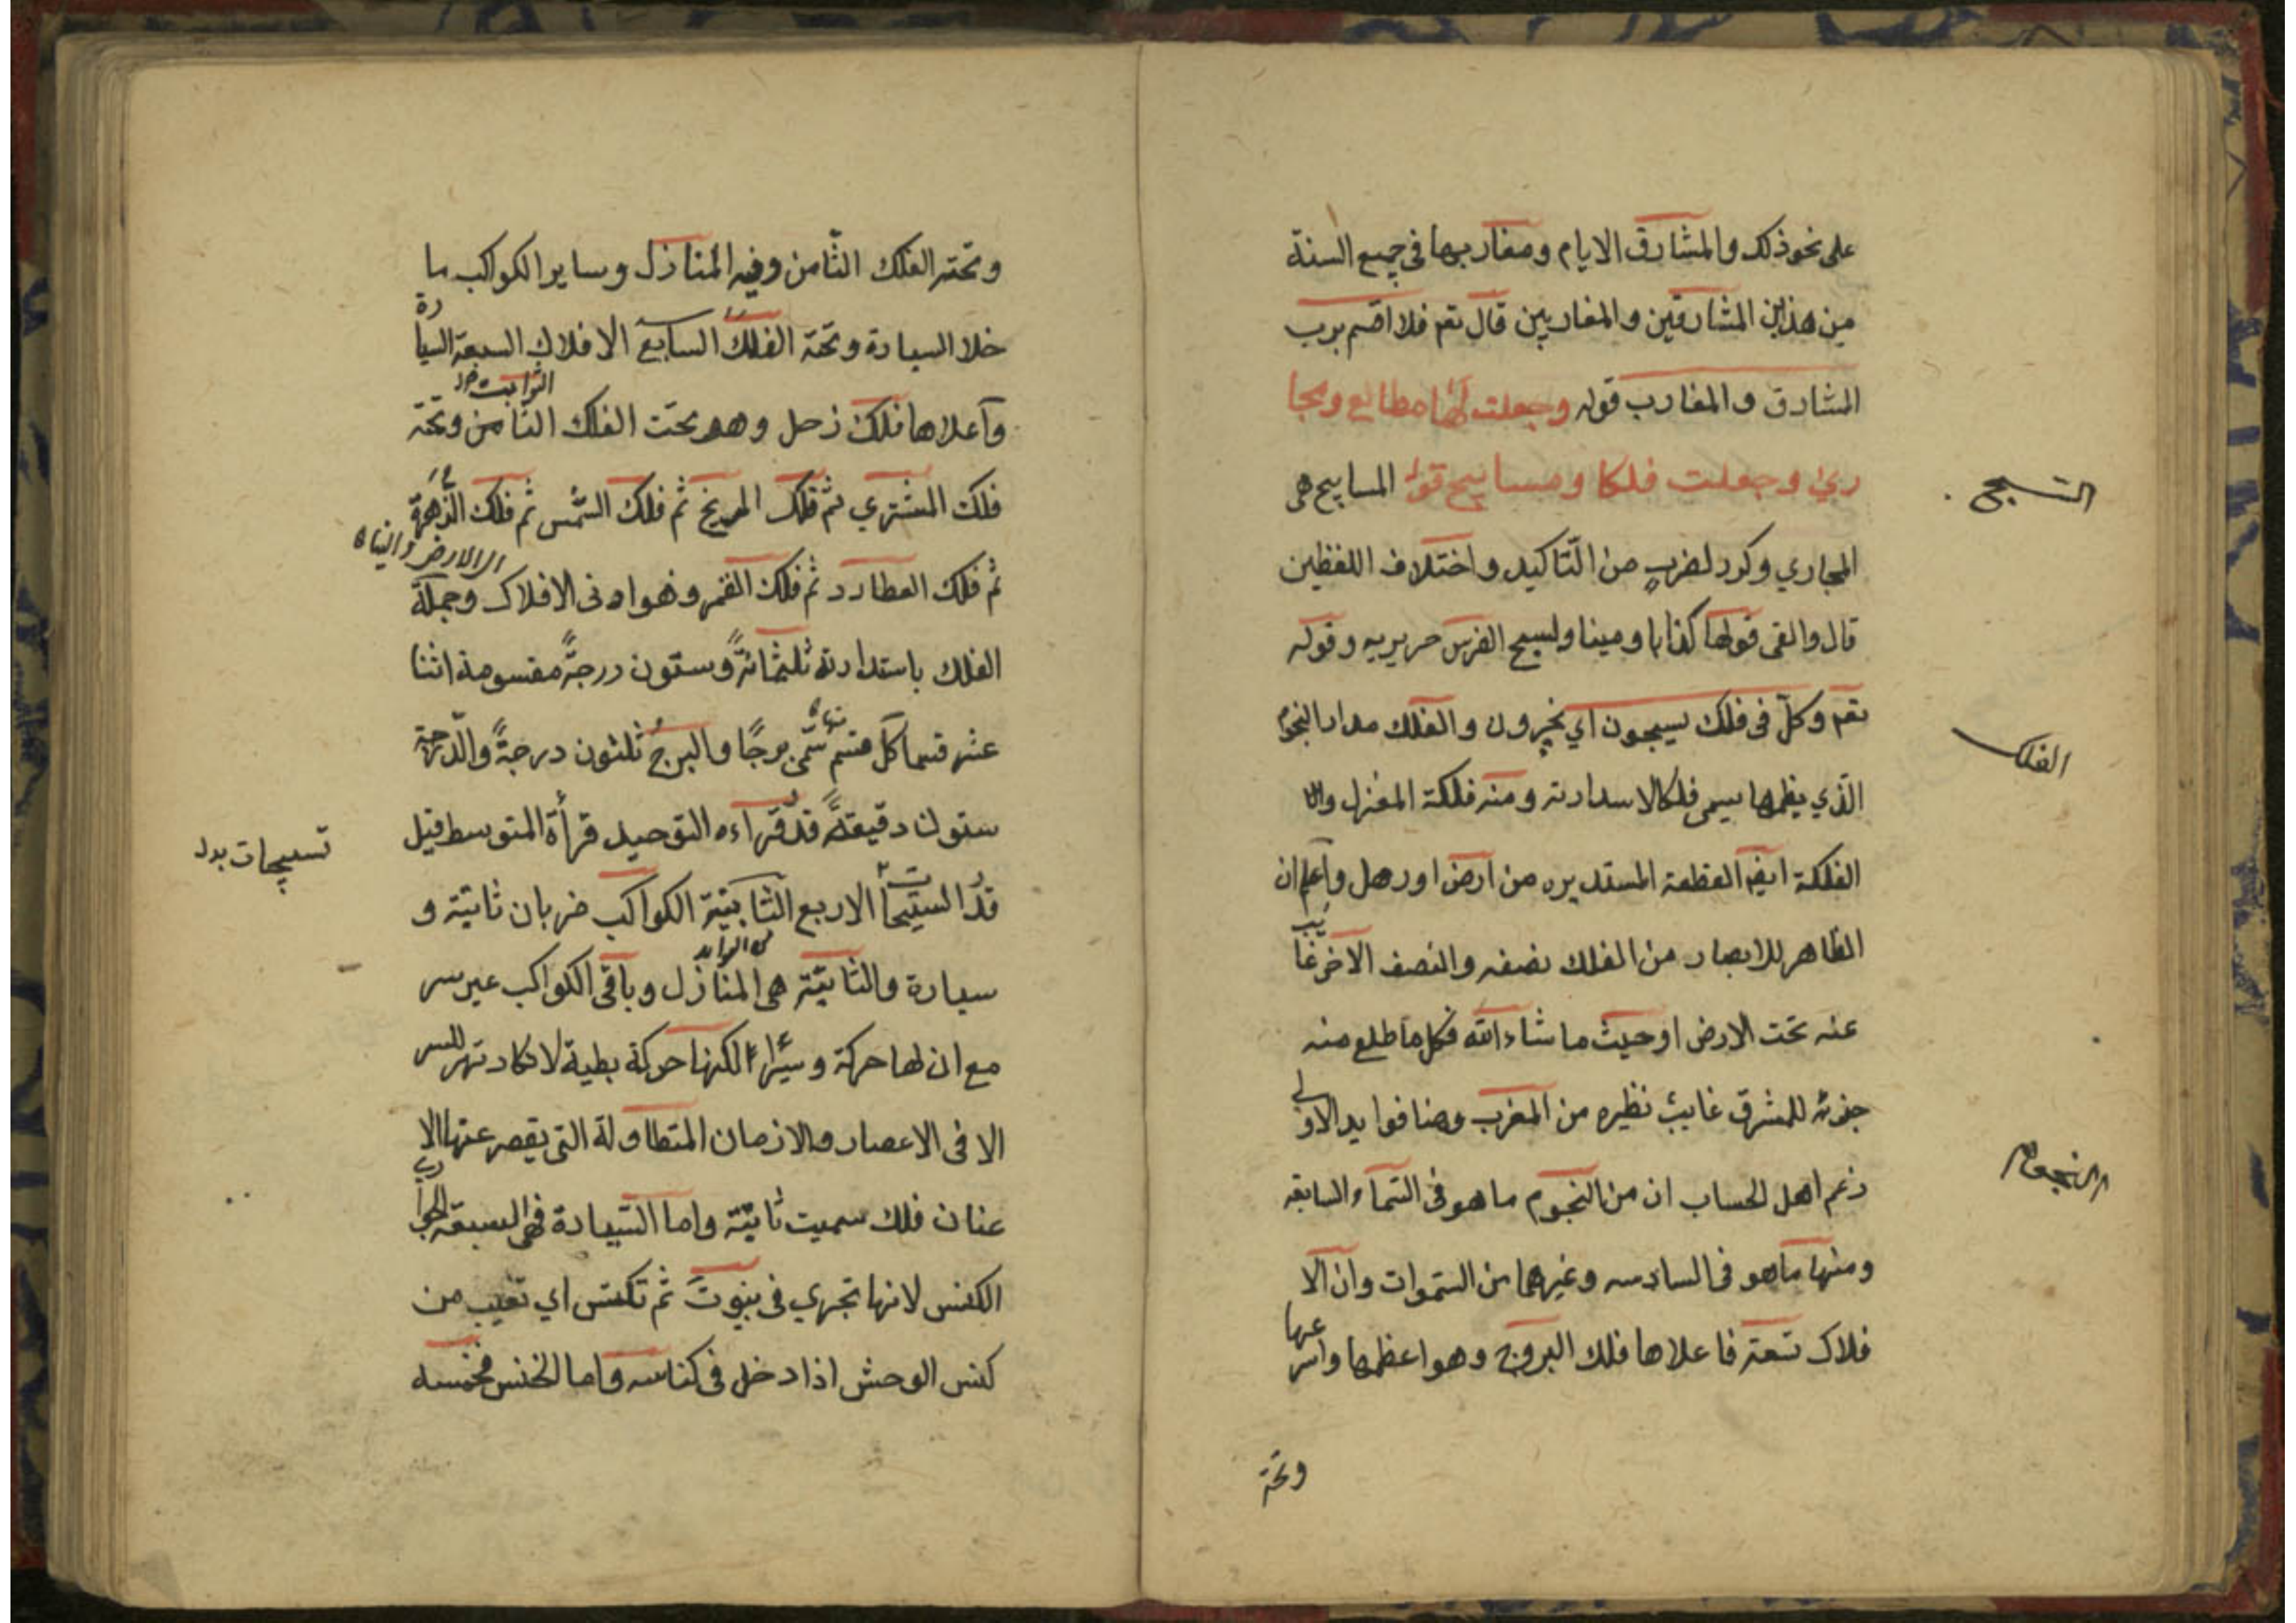 على نحو ذلك والمشارق الايام ومغاربها فى جميع السنة
من هذين المشارقين والمغاربين قال تعم فلا اقسم برب
المشارق والمغارب قوله وجعلت لها مطالع ومجا
ري وجعلت فلكا ومسابيح قوله المسابيح هى
السبح
المجاري وكرر لضرب من التّاكيد واختلاف اللفظين
قال والقى قولها كذابا ومينا ولسبح الفرس جريه وقوله
تعم وكلّ فى فلك يسبحون اي يجرون والفلك مدار النجوم
الفلك
الّذي يظمها يسمى فلكا لاسدارته ومنه فلكة المغزل وال
الفلكة ايضا القطعة المستديره من ارض او رمل واعلم ان
الظاهر للابصار من الفلك نصفه والنصف الآخر غايب
عنه تحت الارض او حيث ما شاء الله فكل ما طلع منه
جزئه للمشرق غايب نظيره من المغرب وهنا فوايد الاولى
زعم اهل الحساب ان من النجوم ما هو فى السّماء السابعه
النجوم
ومنها ما هو فى السادسه وغيرهما من السّموات وان الا
فلاك تسعة فاعلاها فلك البروج وهو اعظمها واسرعها
وتحته
وتحته الفلك الثّامن وفيه المنازل وساير الكواكب ما
خلا السيارة وتحته الفلك السابع الافلاك السبعة السيارة
الثوابت
وأعلاها فلك زحل وهو تحت الفلك الثامن وتحته
فلك المشتري ثم فلك المريخ ثم فلك الشّمس ثم فلك الزّهرة
ثم فلك العطارد ثم فلك القمر وهو ادنى الافلاك وجملة
الى الارض
الفلك باستدارته ثلثمائة وستون درجةً مقسومة اثنا
عشر قسما كل قسم سمّى برجًا والبرجُ ثلثون درجةً والدّرجة
ستون دقيقةً قدّ قراءه التوحيد قرأة المتوسط قيل
تسبيحات بدل
قدّ السبيحات الاربع الثابتة الكواكب ضربان ثابتة و
سيارة والثابتة هى المنازل وباقى الكواكب غير
مع ان لها حركة وسيرًا لكنها حركة بطية لا تكاد تهر
الا فى الاعصار والازمان المتطاولة التى يقصر عنها الا
عنان فلك سميت ثابتة واما السّيارة فهى السبعة الجوار
الكنس لانها تجري فى بيوت ثم تكنس اي تغيب من
كنس الوحش اذا دخل فى كناسه واما الخنس فخمسه